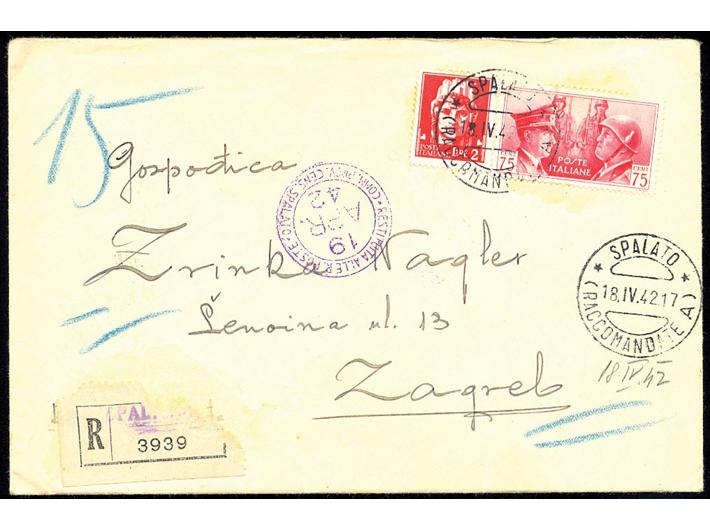 15
SPALATO
18.IV.42
POSTE
ITALIANE LIRE 2
75
POSTE
ITALIANE
CENT
75
Gospođica
RESTITUITA ALLE R. POSTE
COMM. PROV. CENS. SPALATO
19
APR
42
Zrinka Nagler
Šenoina ul. 13
Zagreb
SPALATO
18.IV.42.17
(RACCOMANDATE A)
18 IV. 42
R
SPAL
3939